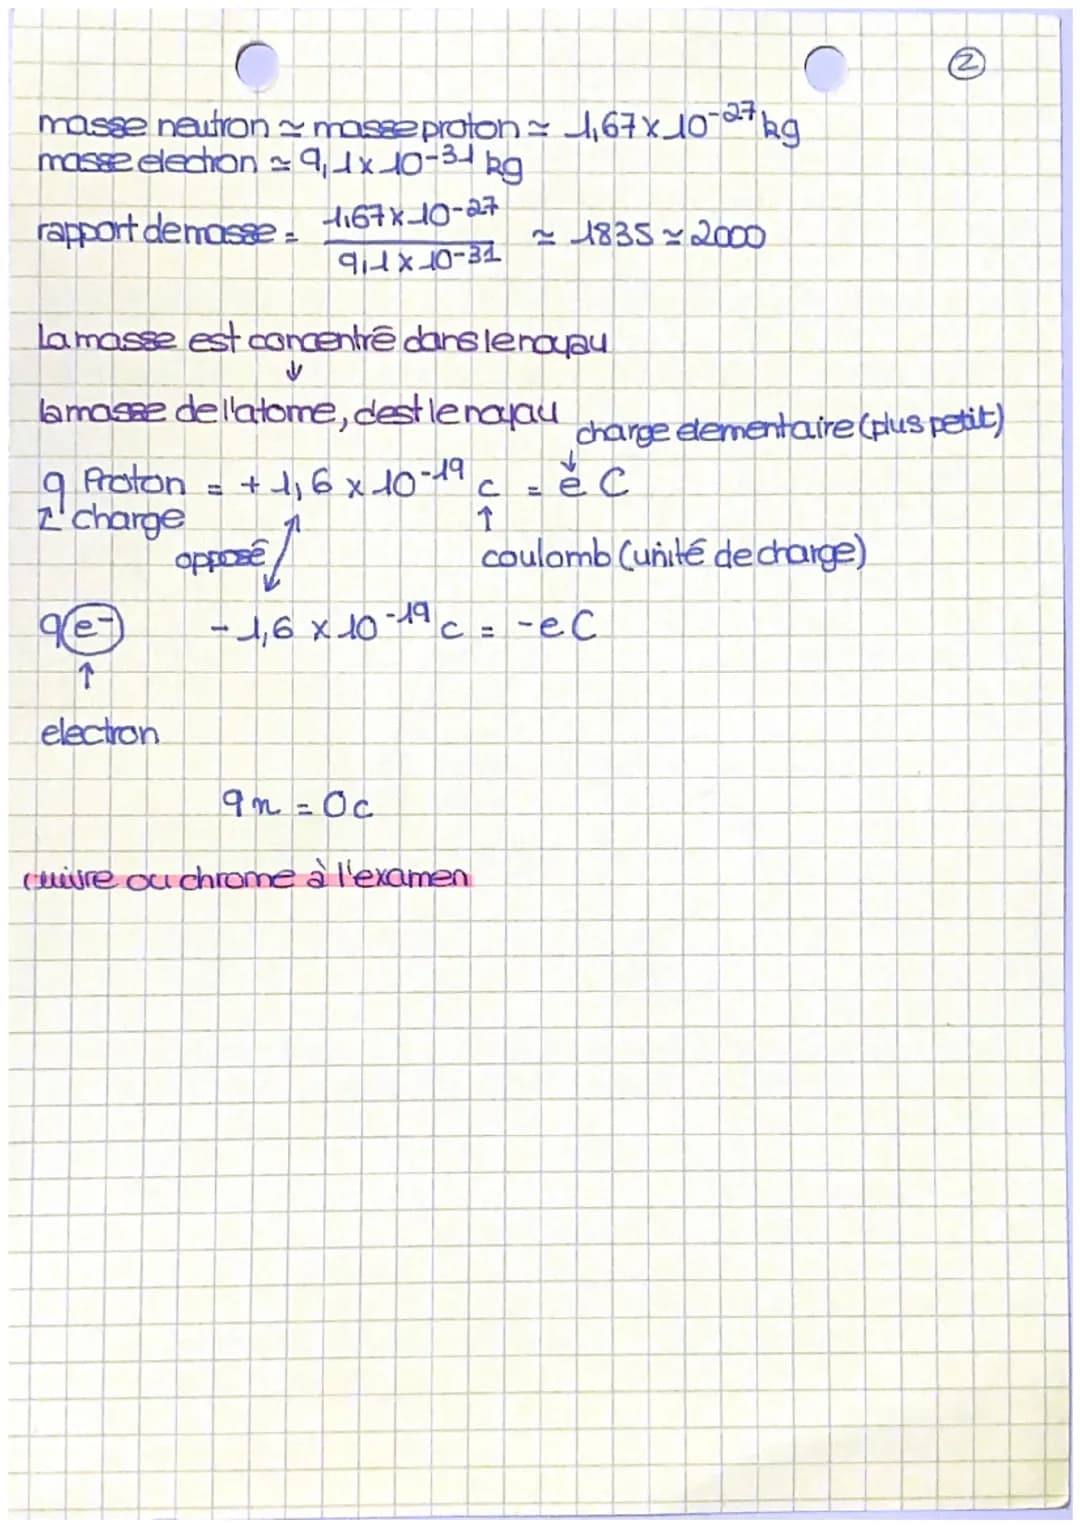 2
masse neutron ≃ masse proton ≃ 1,67 x 10-27 kg
masse electron ≃ 9,1 x 10-31 kg
rapport de masse = 1,67 x 10-27 / 9,1 x 10-31 ≃ 1835 ≃ 2000
La masse est concentré dans le noyau
↓
la masse de l'atome, c'est le noyau
charge elementaire (plus petit)
q Proton = + 1,6 x 10-19 c = e C
charge
opposé
coulomb (unité de charge)
q(e-) - 1,6 x 10-19 c = - e C
↑
electron
qn = 0c
cuivre ou chrome à l'examen